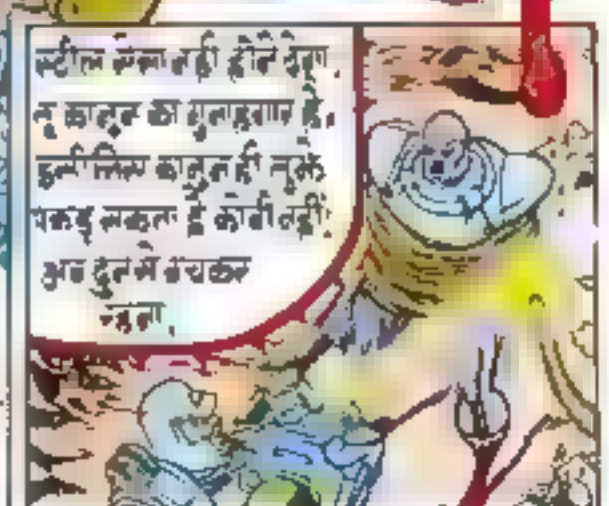 स्टील ऐसा नहीं होने देगा.
तू कानून का गुनाहगार है.
इसीलिए कानून ही तुझे
पकड़ सकता है कोबी नहीं.
अब दूत से बचकर
रहना.